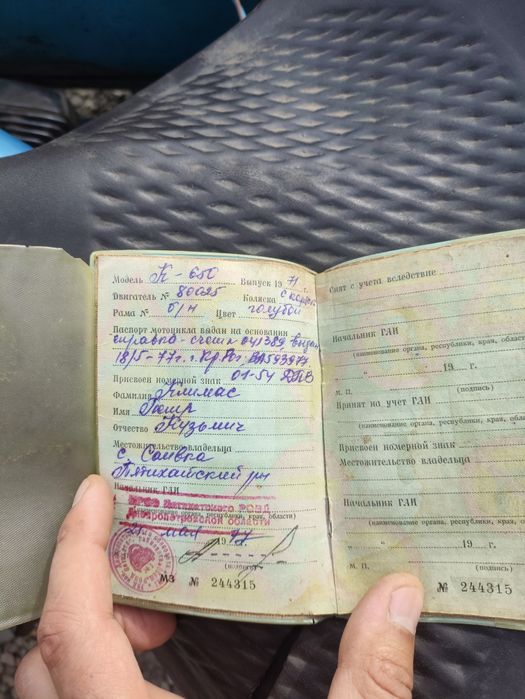 Модель К-650 Выпуск 1971 г.
Двигатель № 80025 Коляска
Рама № б/н Цвет голубой
Паспорт мотоцикла выдан на основании
справка-счета 041389
18/5-77 г. г. Кр Рог
Присвоен номерной знак 01-54
Фамилия Климас
Имя Петр
Отчество Кузьмич
Местожительство владельца
с. Саивка
Пятихайский р-н
Начальник ГАИ
Пятихатского РОВД
(наименование органа, республики, края, области)
Днепропетровской области
мая 19
(подпись)
МЗ № 244315
Снят с учета вследствие
Начальник ГАИ
(наименование органа, республики, края, облас
" " 19 г.
М. П. (подпись)
Принят на учет ГАИ
(наименование органа, республики, края, област
Присвоен номерной знак
Местожительство владельца
Начальник ГАИ
(наименование органа, республики, края, област
" " 19 г.
М. П. (подпись)
№ 244315